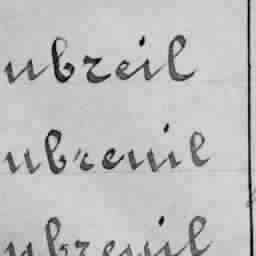 ubreil
ubreuil
ubreuil